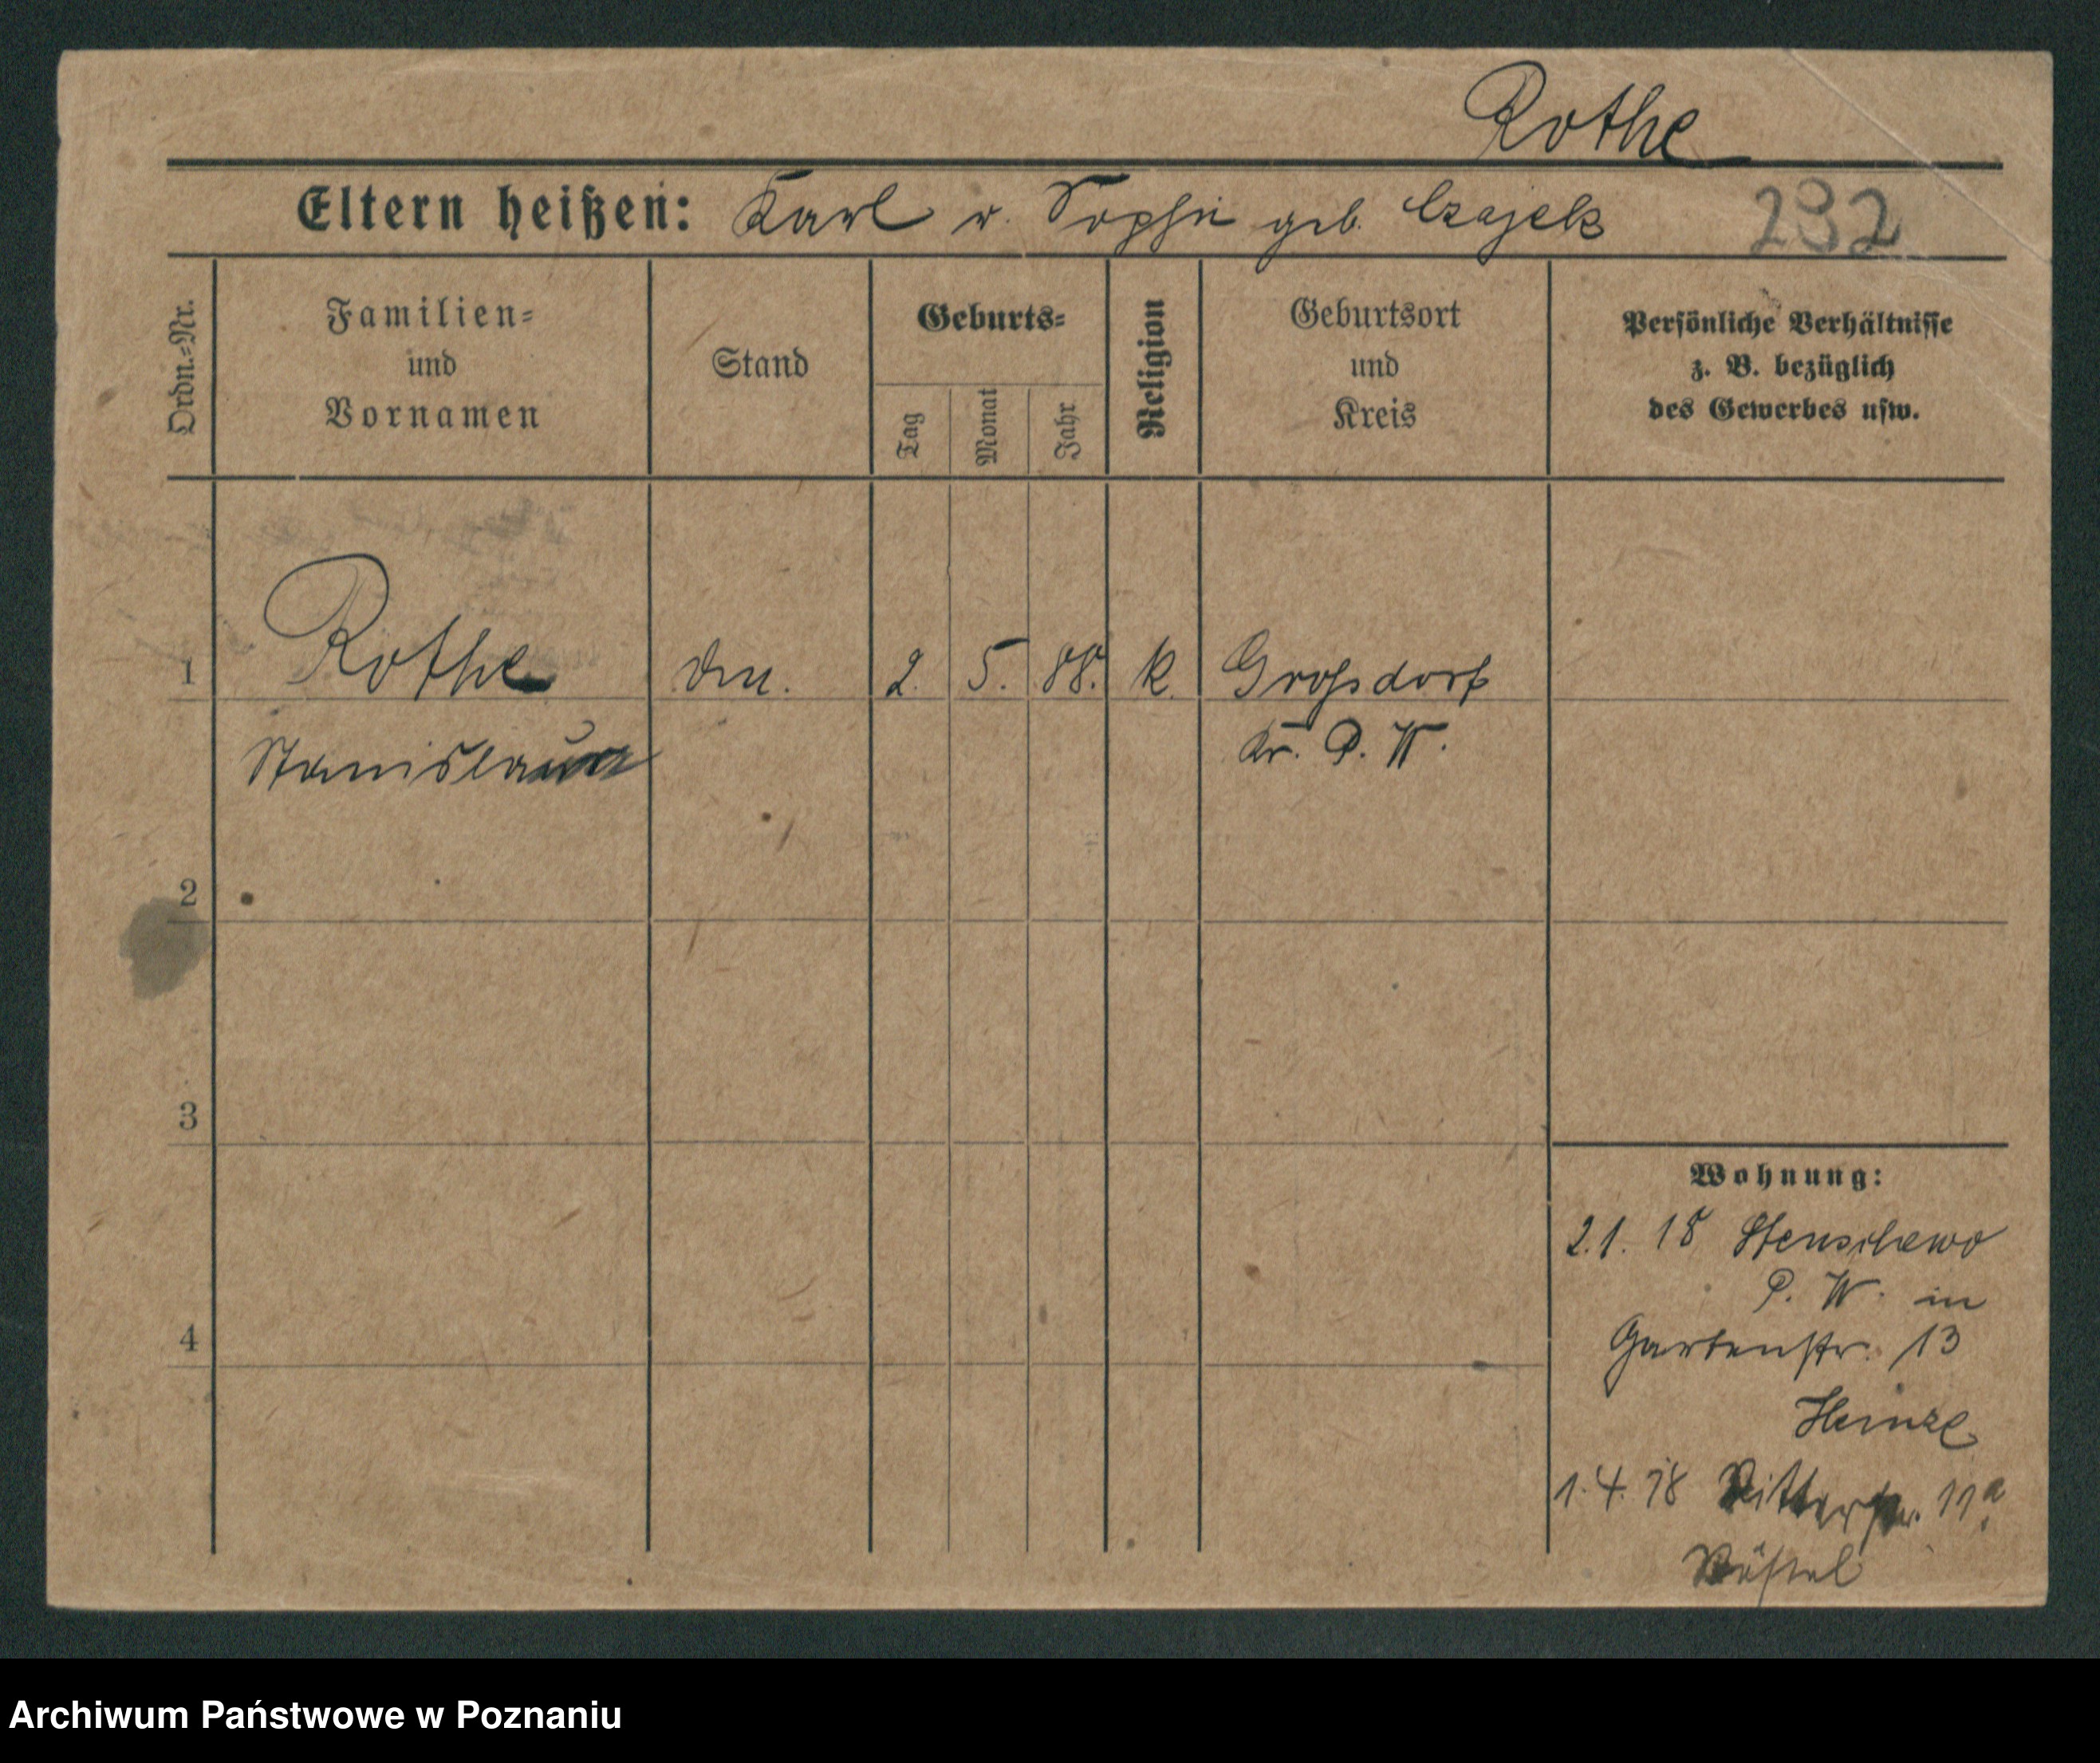 Rothe
Eltern heißen: Karl u. Sophie geb. Czajek 232
Ordn.=Nr.
Familien=
und
Vornamen
Stand
Geburts=
Tag
Monat
Jahr
Religion
Geburtsort
und
Kreis
Persönliche Verhältnisse
z. B. bezüglich
des Gewerbes usw.
1 Rothe 2. 5. 88. k. Grossdorf
Stanislaus Kr. P. W.
2
3
4
Wohnung:
2.1. 18 Stenschewo
P. W. in
Gartenstr. 13
Heinze
1. 4. 18 Ritterstr. 11a
Archiwum Państwowe w Poznaniu